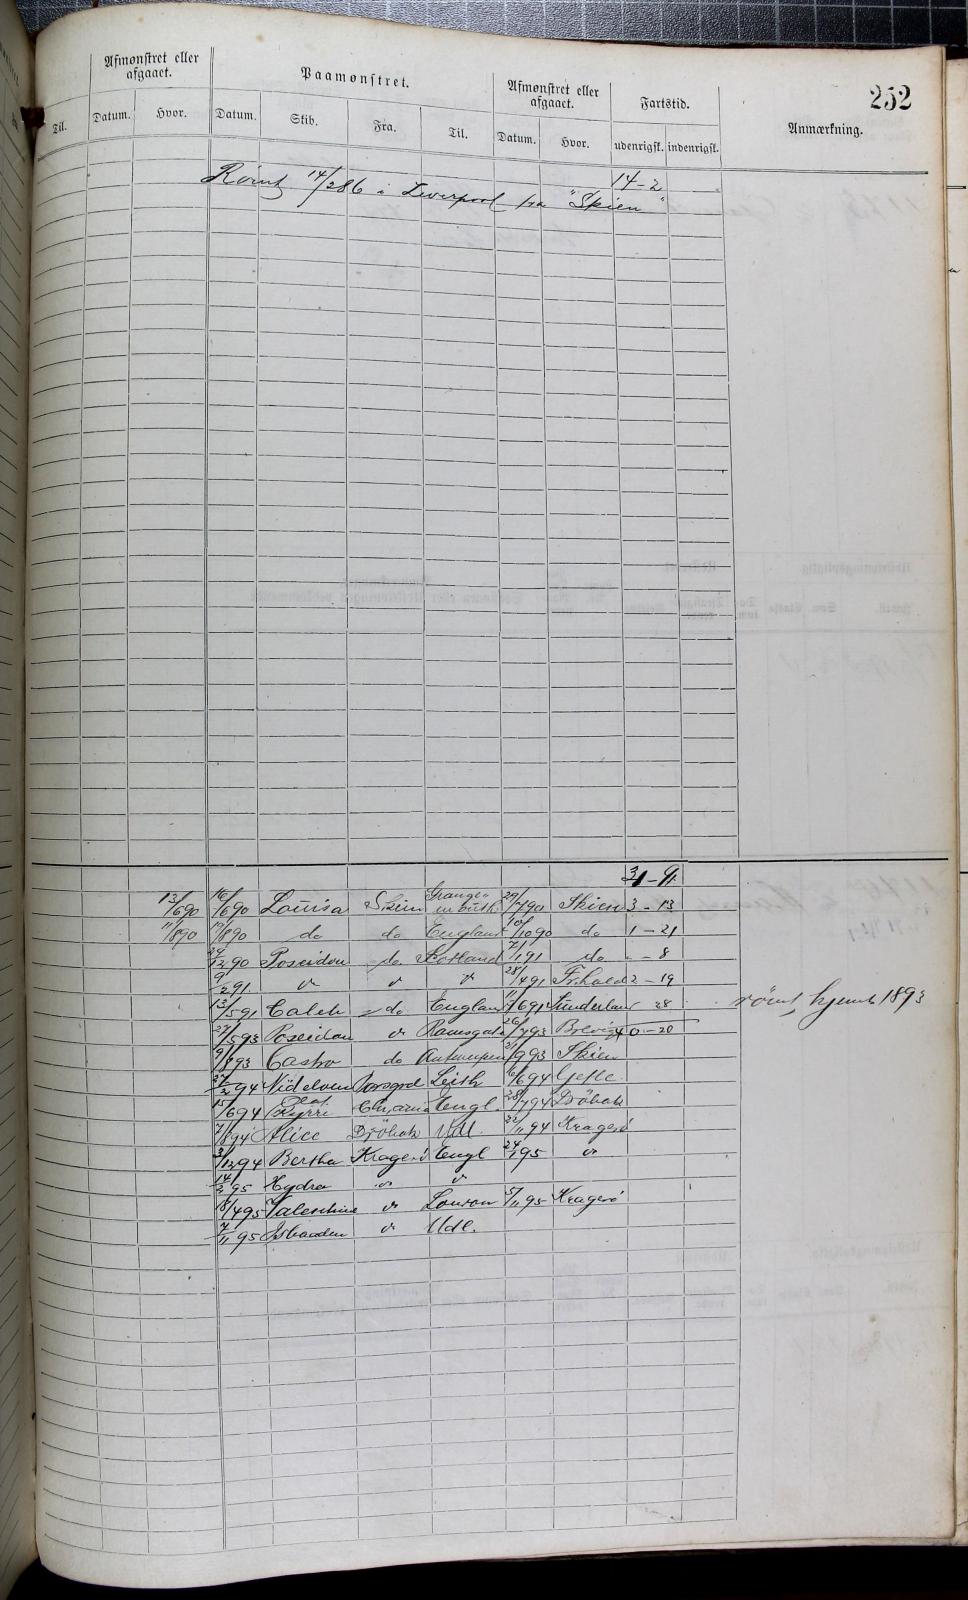 252
Afmønstret eller afgaaet. Paamønstret. Afmønstret eller afgaaet. Fartstid. Anmærkning.
Til. Datum. Hvor. Datum. Skib. Fra. Til. Datum. Hvor. udenrigsk. indenrigsk.
14-2
Römt 14/2 86 i Liverpool fra "Skien"
31-9
13/6 90 16/6 90 Louisa Skien Grangemouth 29/7 90 Skien 3-13
11/8 90 19/8 90 do do England 10/10 90 do 1-21
24/12 90 Poseidon do Skotland 7/1 91 do - - 8
9/2 91 do do do 28/4 91 Fr.hald 2-19
13/5 91 Caleb do England 11/6 91 Sunderland - 28 römt, hjemk 1893
27/5 93 Poseidon do Ramsgate 26/7 93 Brevig 40-20
9/8 93 Castro do Antwerpen 21/9 93 Skien
94 Nidelven Porsgrd Leith 16/6 94 Gefle
15/6 94 Chr.ania Engl. 28/7 94 Dröbak
7/8 94 Alice Dröbak Udl. 22/11 94 Kragerö
3/12 94 Bertha Kragerö Engl 24/1 95 do
14/2 95 Hydra do do
18/4 95 Valentine do London 5/11 95 Kragerö
7/11 95 do Udl.